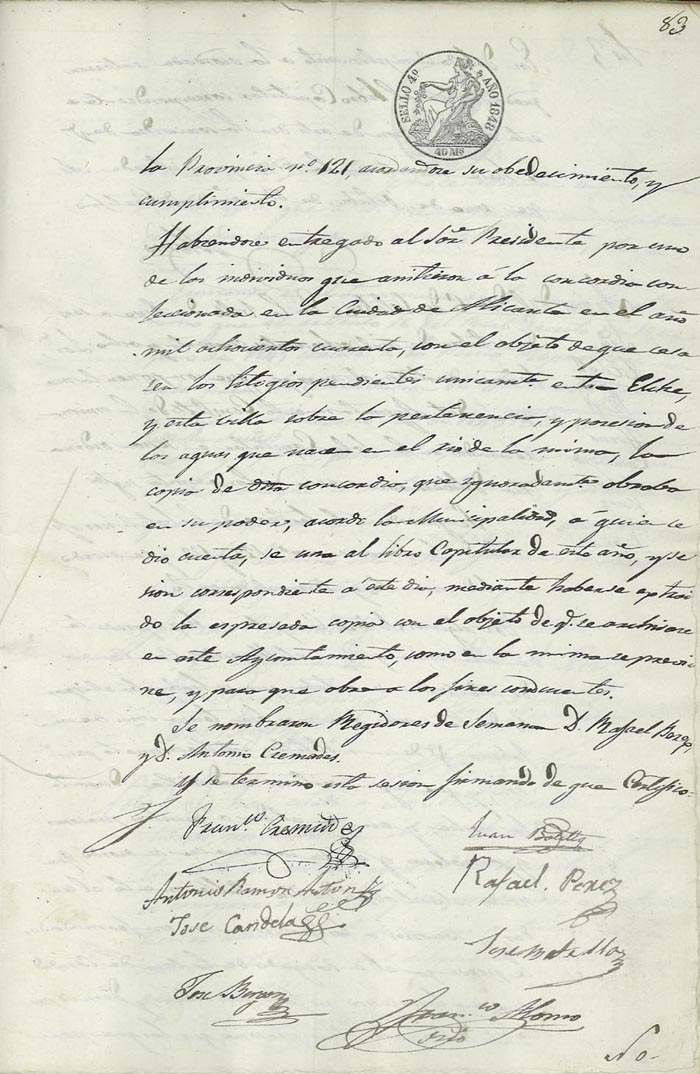 83
SELLO 4º AÑO 1848
40 Ms
la Provincia nº 121 acordandose su obedecimiento, y
cumplimiento.
Habiendose entregado al Sor. Presidente por uno
de los individuos que asistieron á la concordia con-
feccionada en la Ciudad de Alicante en el año
mil ochocientos cuarenta, con el objeto de que cesa
sen los litigios pendientes unicamte. entre Elche,
y esta villa sobre la pertenencia, y posesion de
las aguas que nacen en el rio de la misma, la
copia de dha concordia, que ignoradamte. obraba
en su poder, acordó la Municipalidad, á quien se
dio cuenta, se una al libro Capitular de este año, y se
sion correspondiente á este dia, mediante haberse extrai
do la espresada copia con el objeto de q. se archivase
en este Ayuntamiento, como en la misma se previe
ne, y para que obre a los fines conducentes.
Se nombraron Regidores de Semana D. Rafael Perez,
y D. Antonio Cremades.
Y se termino esta sesion firmando de que Certifico.
Franco. Cremades
Juan Botella
Antonio Ramon Anton
Rafael Perez
Jose Candela
Jose Botella
Jose
Franco. Alonso
Srio
No.